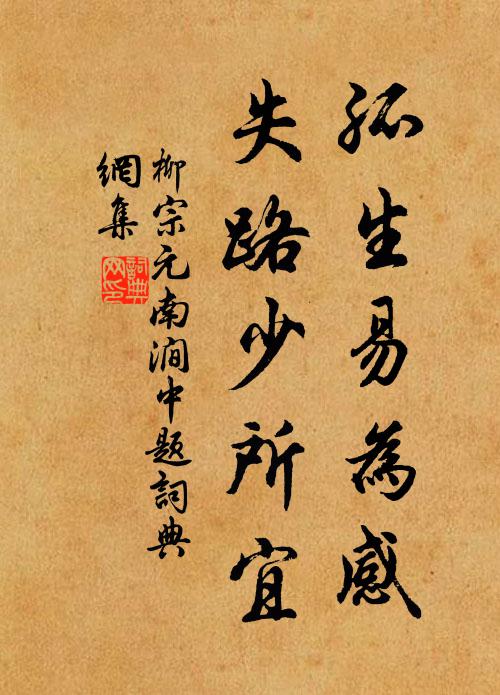 孤生易為感
失路少所宜
柳宗元南澗中題詞典
網集
詞典網印